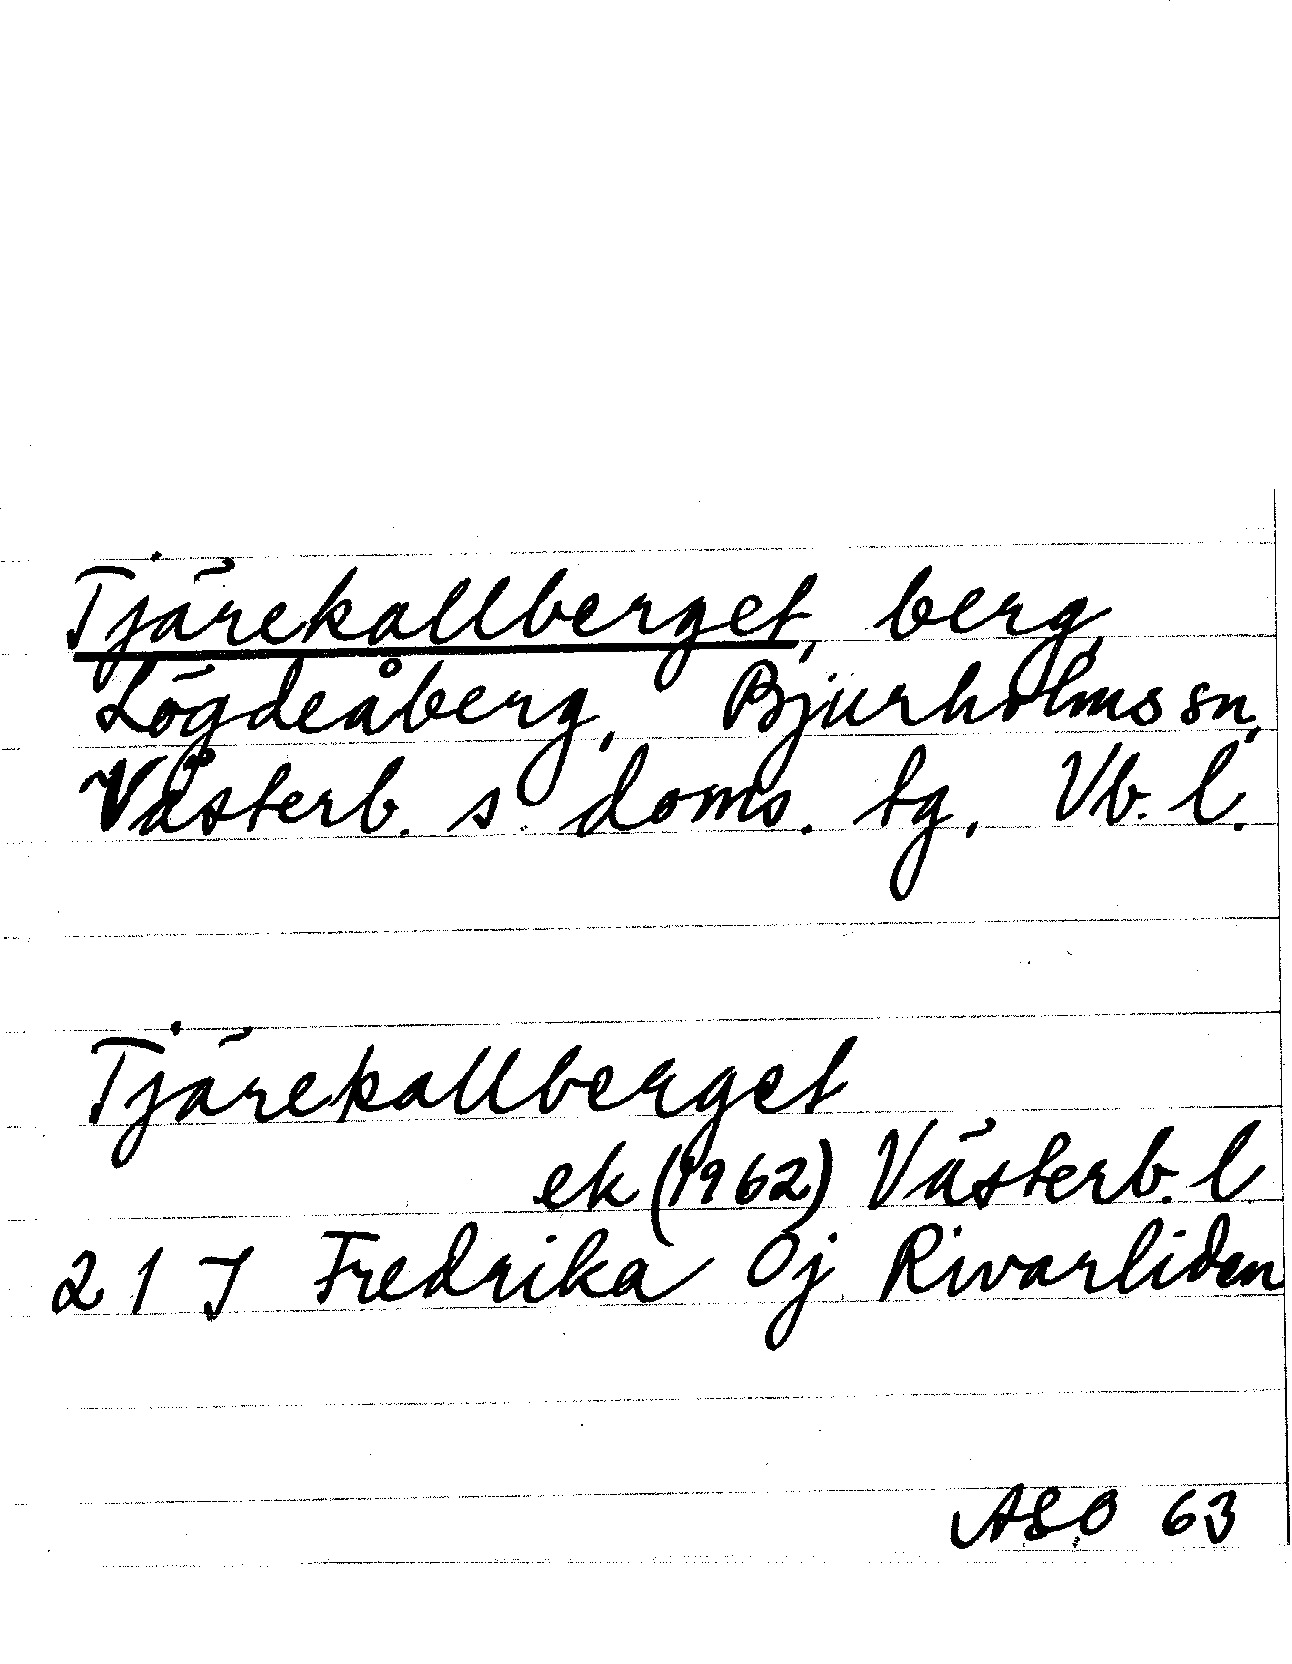 Tjärekallberget, berg,
Lögdeåberg, Bjurholms sn,
Västerb. s doms. tg, Vb. l.
Tjärekallberget
ek (1962) Västerb. l
21 J Fredrika Öj Rivarliden
ASO 63